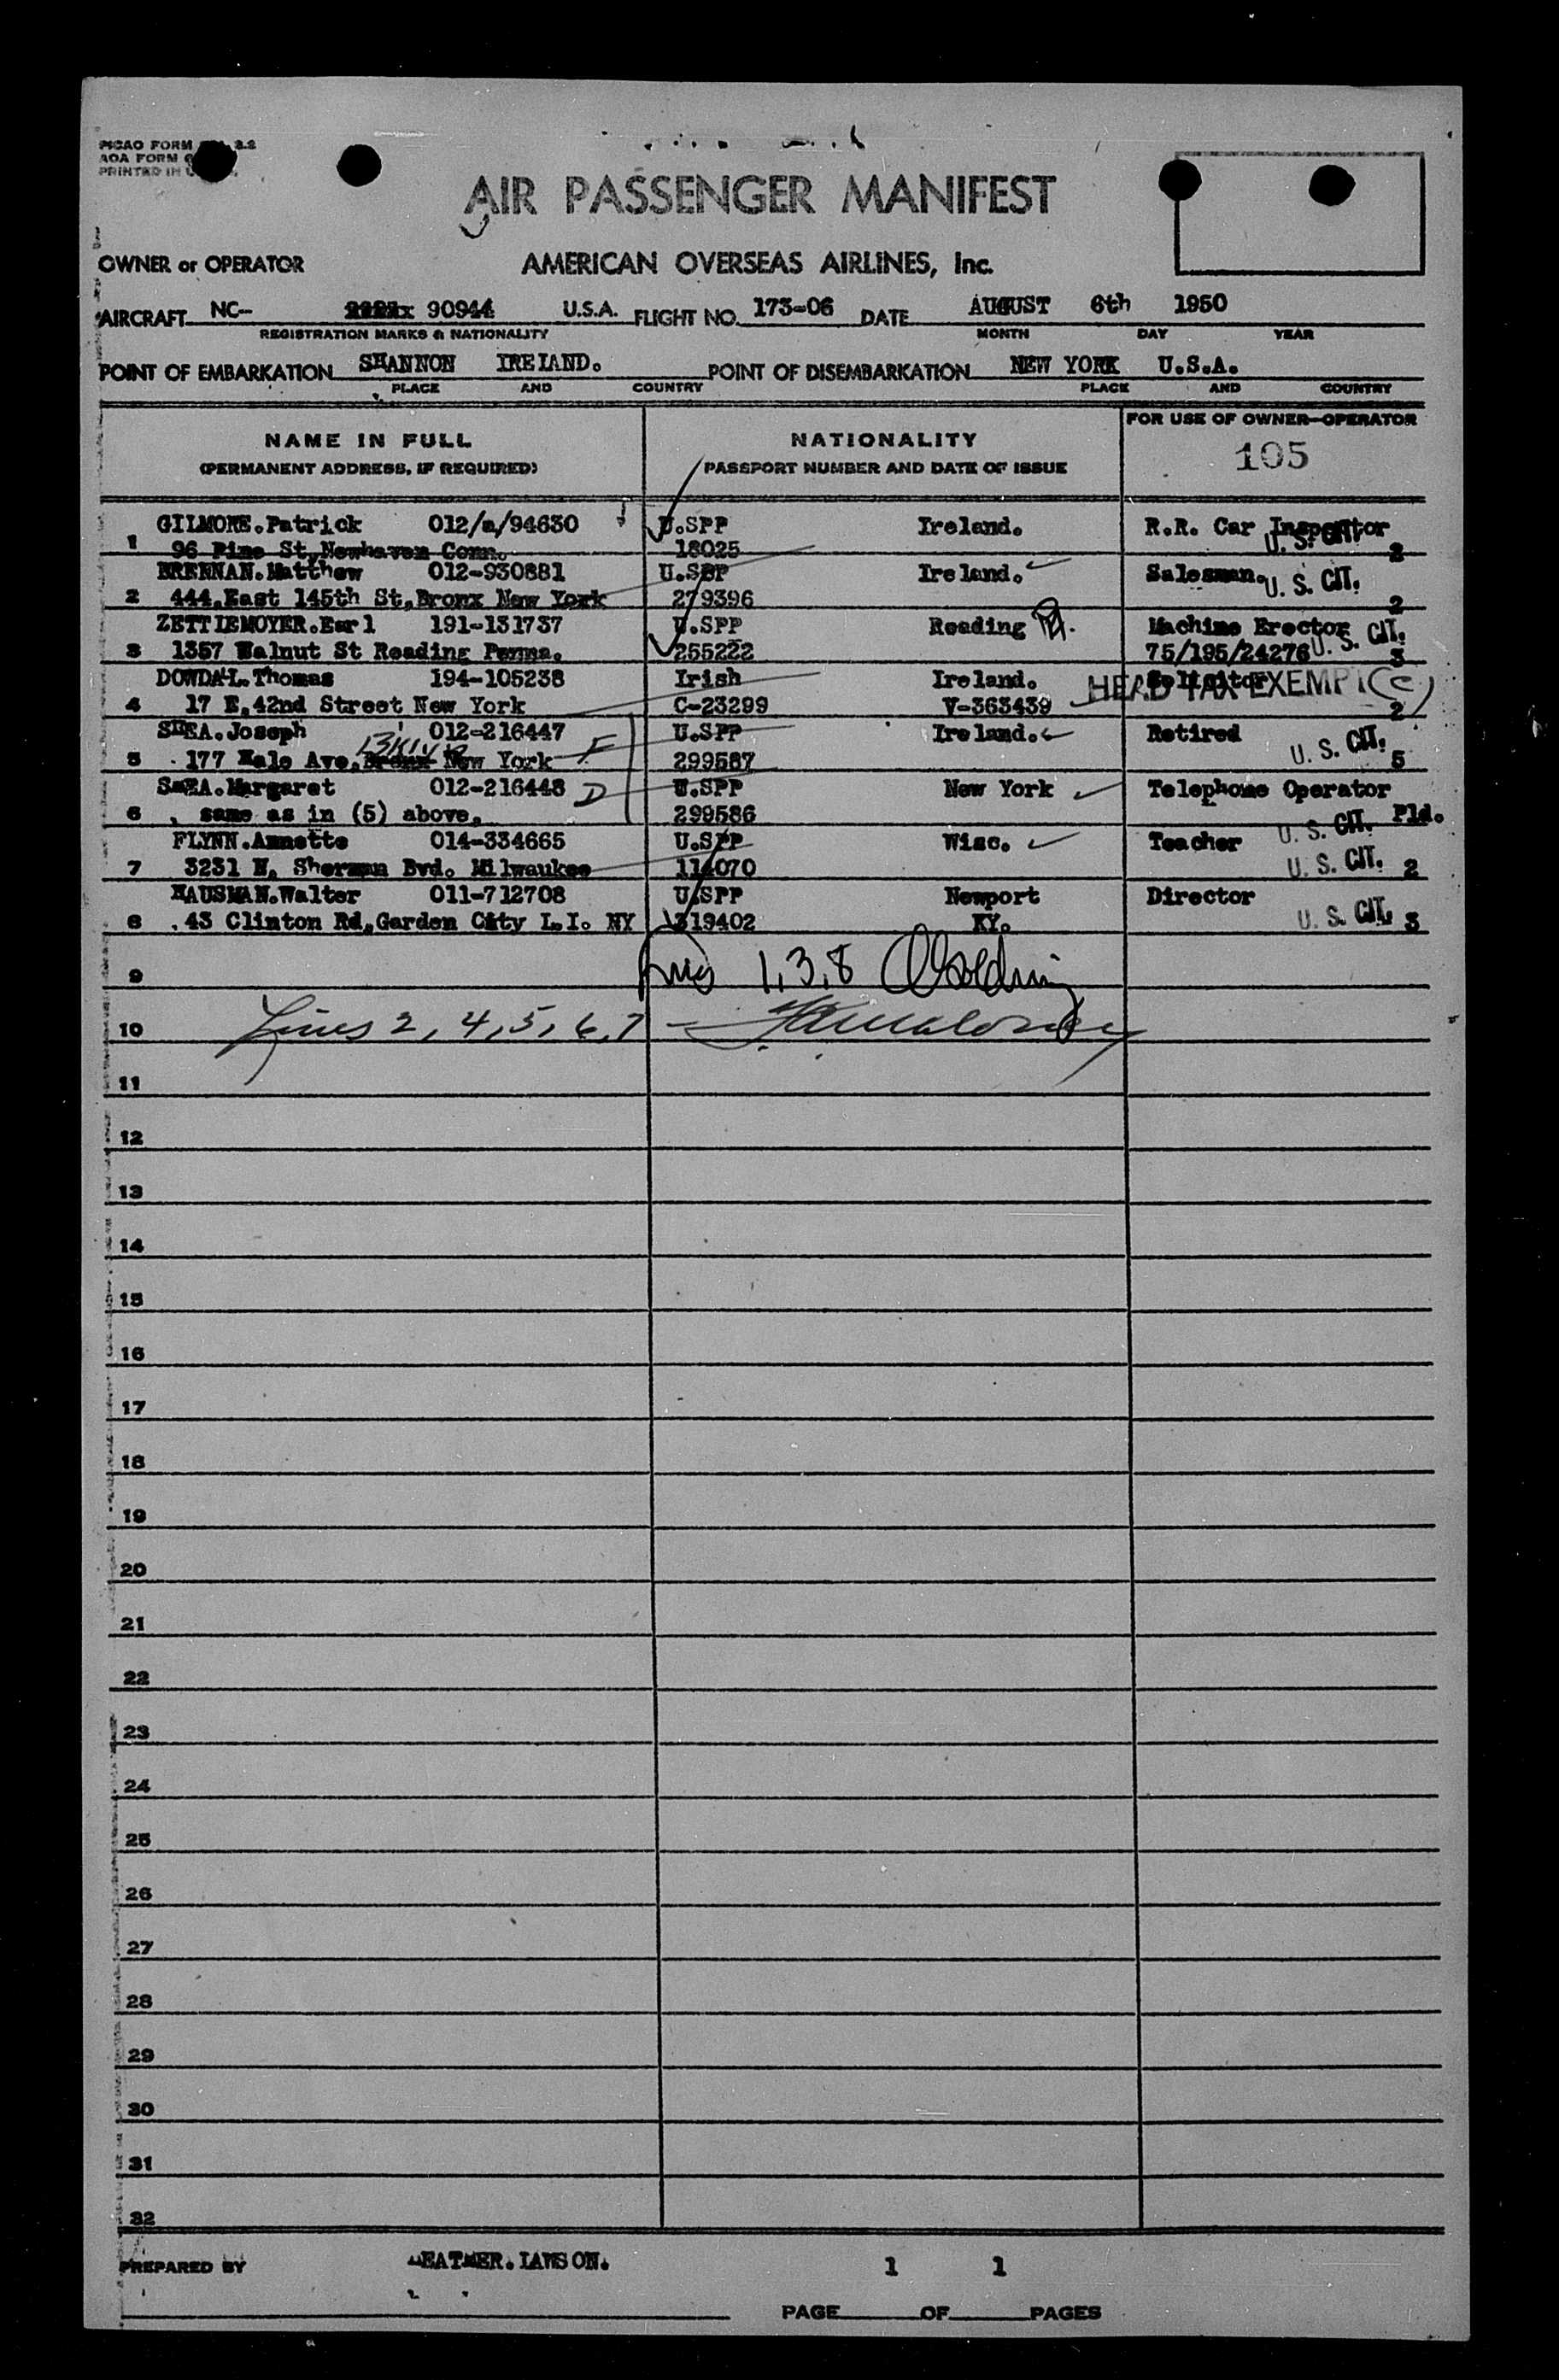 PICAO FORM 2.2
AOA FORM
PRINTED IN U.
AIR PASSENGER MANIFEST
OWNER or OPERATOR AMERICAN OVERSEAS AIRLINES, Inc.
AIRCRAFT NC- 90944 U.S.A. FLIGHT NO. 173-06 DATE AUGUST 6th 1950
REGISTRATION MARKS & NATIONALITY MONTH DAY YEAR
POINT OF EMBARKATION SHANNON IRELAND. POINT OF DISEMBARKATION NEW YORK U.S.A.
PLACE AND COUNTRY PLACE AND COUNTRY
NAME IN FULL NATIONALITY FOR USE OF OWNER-OPERATOR
(PERMANENT ADDRESS, IF REQUIRED) PASSPORT NUMBER AND DATE OF ISSUE 105
GILMORE.Patrick 012/a/94630 U.SPP Ireland. R.R. Car Inspector
1 96 Pine St,Newhaven Conn. 18025 U. S. CIT. 2
BRENNAN.Matthew 012-930881 U.SPP Ireland. Salesman. U. S. CIT.
2 444,East 145th St,Bronx New York 279396 2
ZETTLEMOYER.Earl 191-131737 U.SPP Reading Machine Erector
3 1357 Walnut St Reading Penna. 255222 75/195/24276 U. S. CIT. 3
DOWDAL.Thomas 194-105238 Irish Ireland. Solicitor HEAD TAX EXEMPT (c)
4 17 E,42nd Street New York C-23299 V-363439 2
SHEA.Joseph 012-216447 U.SPP Ireland. Retired
5 177 Hale Ave, Bronx Bklyn New York F 299587 U. S. CIT. 5
SHEA.Margaret 012-216448 D U.SPP New York Telephone Operator
6 , same as in (5) above, 299586 U. S. CIT. Pld.
FLYNN.Annette 014-334665 U.SPP Wisc. Teacher
7 3231 N, Sherman Bvd. Milwaukee 114070 U. S. CIT. 2
HAUSMAN.Walter 011-712708 U.SPP Newport Director
8 .43 Clinton Rd,Garden City L.I. NY 319402 KY. U. S. CIT. 3
9 1,3,8
10 Lines 2, 4, 5, 6, 7 -
11
12
13
14
15
16
17
18
19
20
21
22
23
24
25
26
27
28
29
30
31
32
PREPARED BY 1 1
PAGE OF PAGES